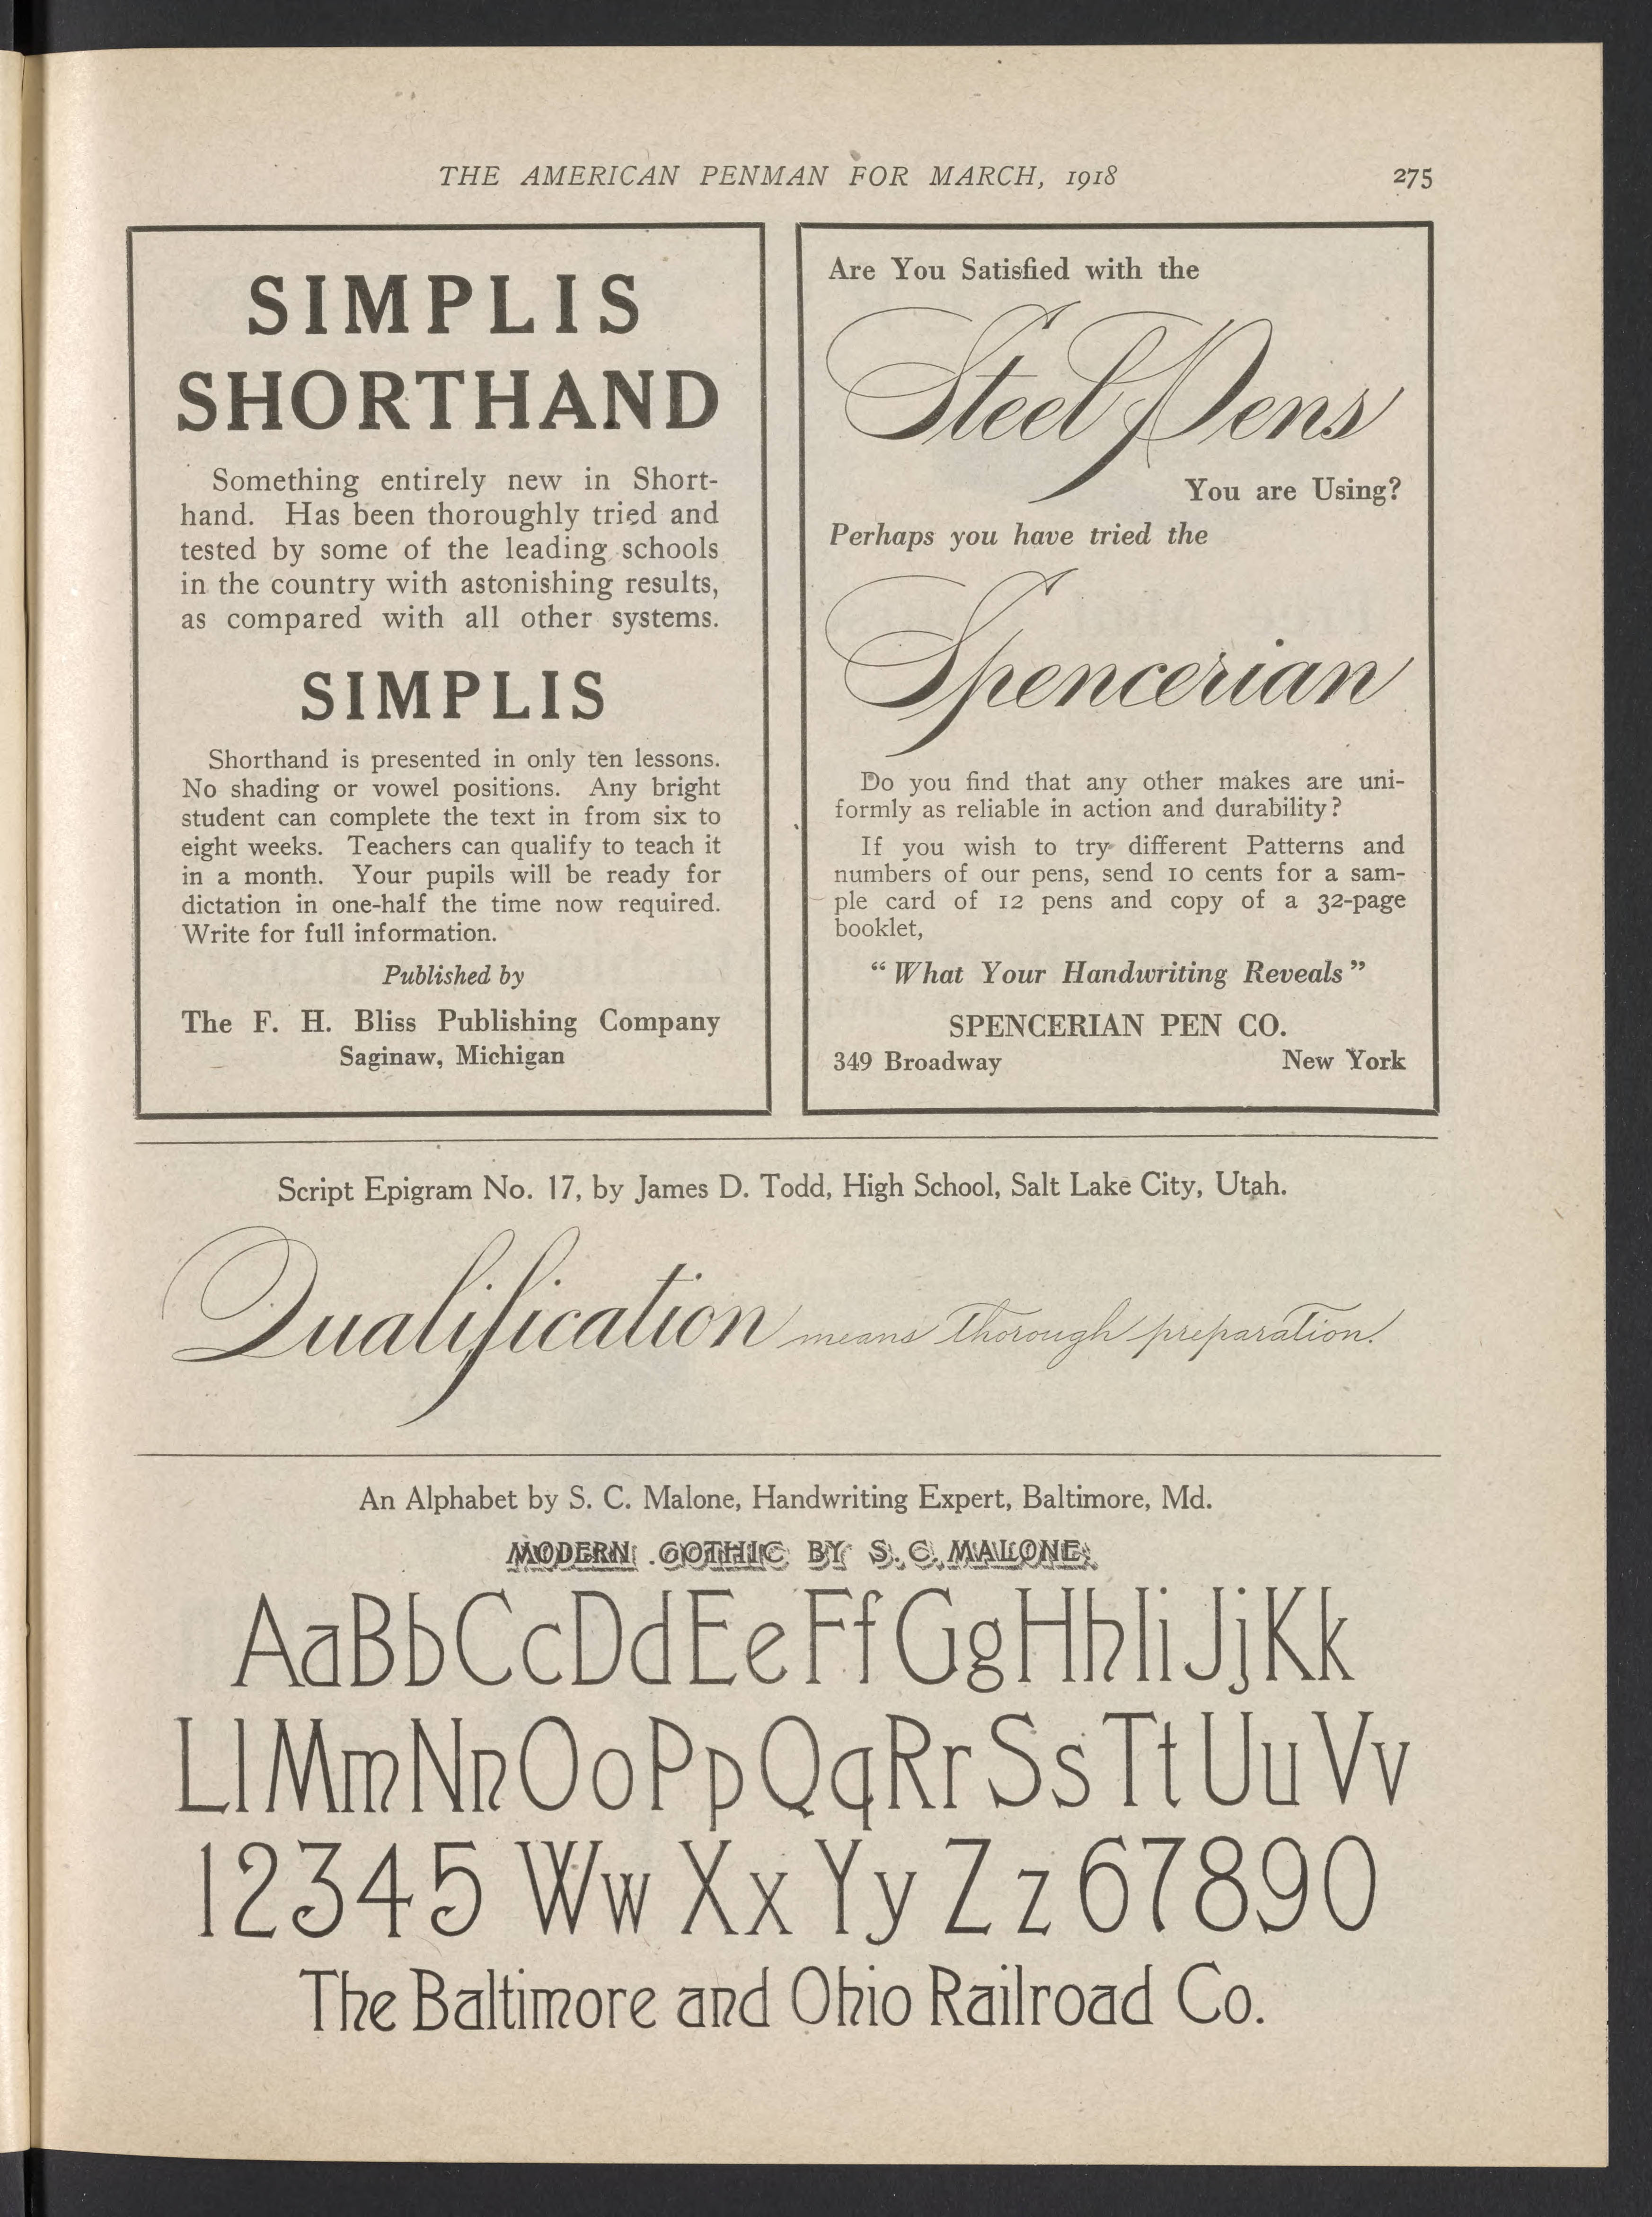 THE AMERICAN PENMAN FOR MARCH, 1918
275
SIMPLIS
SHORTHAND
Something entirely new in Short-
hand. Has been thoroughly tried and
tested by some of the leading schools
in the country with astonishing results,
as compared with all other systems.
SIMPLIS
Shorthand is presented in only ten lessons.
No shading or vowel positions. Any bright
student can complete the text in from six to
eight weeks. Teachers can qualify to teach it
in a month. Your pupils will be ready for
dictation in one-half the time now required.
Write for full information.
Published by
The F. H. Bliss Publishing Company
Saginaw, Michigan
Are You Satisfied with the
Steel Pens
You are Using?
Perhaps you have tried the
Spencerian
Do you find that any other makes are uni-
formly as reliable in action and durability?
If you wish to try different Patterns and
numbers of our pens, send 10 cents for a sam-
ple card of 12 pens and copy of a 32-page
booklet,
“What Your Handwriting Reveals”
SPENCERIAN PEN CO.
349 Broadway New York
Script Epigram No. 17, by James D. Todd, High School, Salt Lake City, Utah.
Qualification means thorough preparation.
An Alphabet by S. C. Malone, Handwriting Expert, Baltimore, Md.
MODERN GOTHIC BY S. C. MALONE
AaBbCcDdEeFfGgHhIiJjKk
LlMmNnOoPpQqRrSsTtUuVv
12345 Ww Xx Yy Zz 67890
The Baltimore and Ohio Railroad Co.